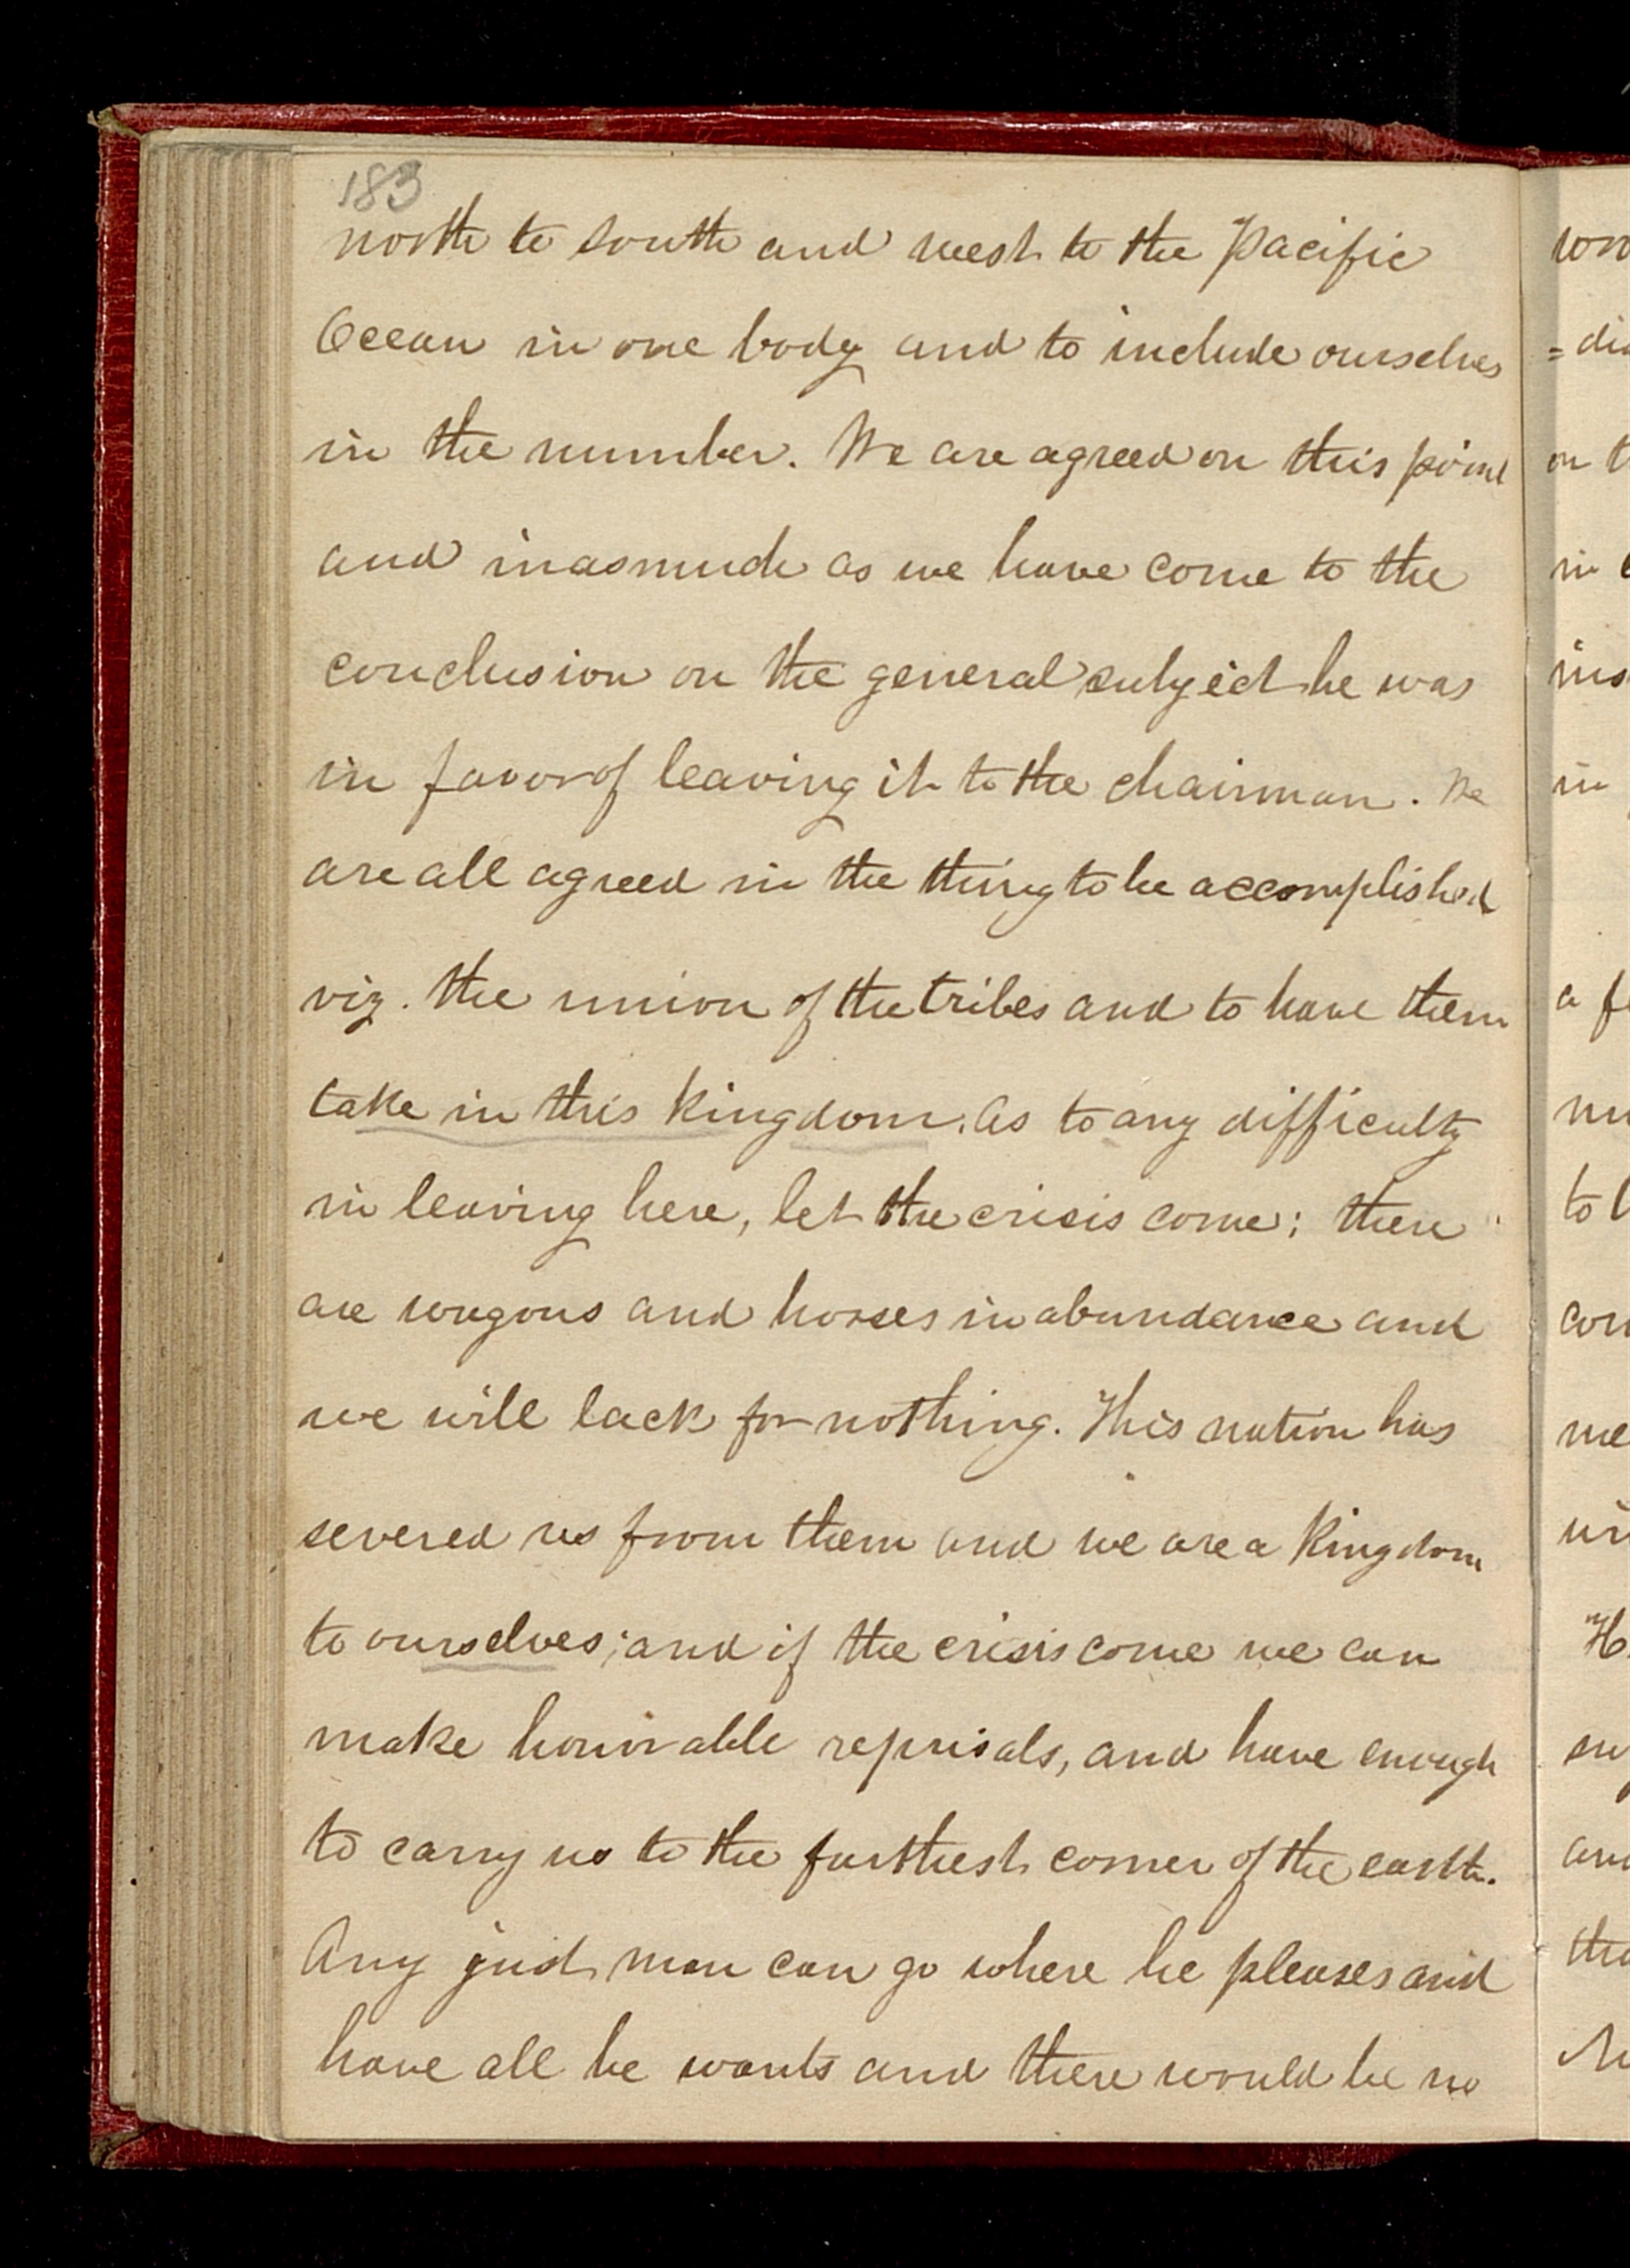 183
north to south and west to the Pacific
Ocean in one body and to include ourselves
in the number. We are agreed on this point
and inasmuch as we have come to the
conclusion on the general subject he was
in favor of leaving it to the chairman. We
are all agreed in the thing to be accomplished
viz. the union of the tribes and to have them
take in this kingdom. As to any difficulty
in leaving here, let the crisis come; there
are wagons and horses in abundance and
we will lack for nothing. This nation has
severed us from them and we are a Kingdom
to ourselves; and if the crisis come we can
make honorable reprisals, and have enough
to carry us to the furthest corner of the earth.
Any just man can go where he pleases and
have all he wants and there would be no